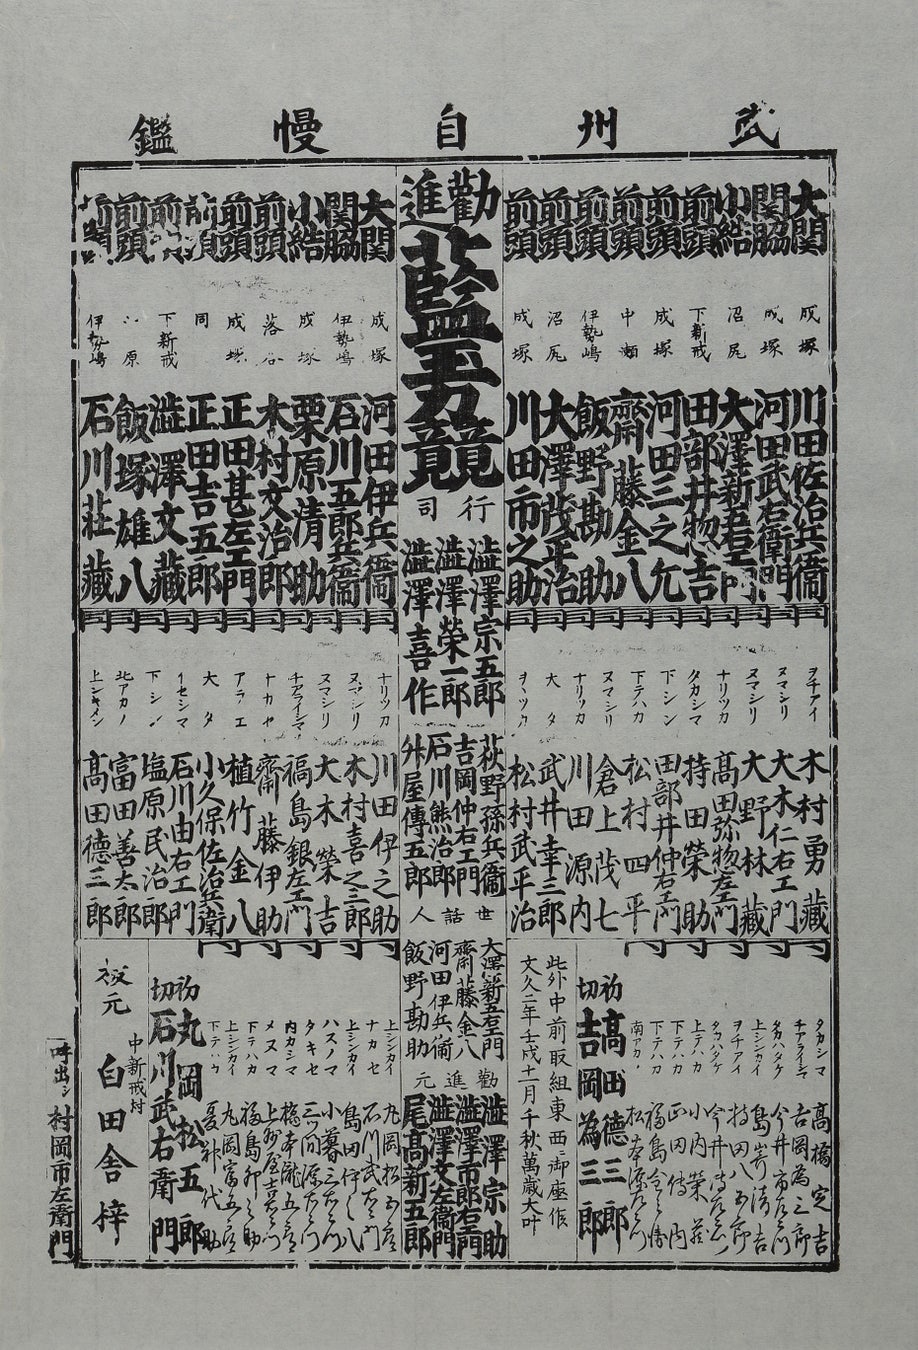 武州自慢鑑
大関 成塚 川田佐治兵衞
関脇 成塚 河田武右衛門
小結 沼尻 大澤新五右エ門
前頭 下新戒 田部井惣吉
前頭 成塚 河田三之允
前頭 中瀬 齋藤金八
前頭 伊勢嶋 飯野勘助
前頭 沼尻 大澤茂平治
前頭 成塚 川田市之助
勧進
藍玉力競
行司
澁澤宗五郎
澁澤榮一郎
澁澤喜作
大関 成塚 河田伊兵衞
関脇 伊勢嶋 石川五郎兵衞
小結 成塚 栗原清助
前頭 落合 木村文治郎
前頭 成塚 正田甚左エ門
前頭 同 正田吉五郎
前頭 下新戒 澁澤文藏
前頭 原 飯塚雄八
前頭 伊勢嶋 石川莊藏
ヲチアイ 木村勇藏
ヌマシリ 大木仁右エ門
ヌマシリ 大野林藏
タカシマ 髙田弥惣左エ門
下シン 持田榮助
下テハカ 田部井仲右エ門
ヌマシリ 松村四平
ナリツカ 倉上茂七
大タ 川田源内
武井幸三郎
松村武平治
荻野孫兵衞
吉岡仲右エ門
石川熊治郎
舛屋傳五郎
ナリツカ 川田伊之助
ヌマシリ 木村喜之三郎
ヌマシリ 大木榮吉
チアライシマ 福島銀左エ門
ナカセ 齋藤伊助
植竹金八
大タ 小久保佐治兵衛
イセシマ 石川由右エ門
下シン 塩原民治郎
北アカノ 富田善太郎
上シキメン 髙田德三郎
世話人
大澤新五右エ門
齋藤金八
河田伊兵衞
飯野勘助
勧進元
澁澤宗助
澁澤市郎右エ門
澁澤文左衛門
尾髙新五郎
タカシマ 髙橋定吉
チアライシマ 吉岡為三郎
タカハタケ 今井市左衛門
上シンカイ 島嵜清吉
ヲチアイ 持田八五郎
タカハタケ
上テハカ 小内榮藏
下テハカ 正田傳内
下テハカ 福島
南アカ 松本源左衛門
初 髙田德三郎
切 吉岡為三郎
此外中前取組東西ニ御座候
文久二年壬戌十一月千秋萬歳大叶
上シンカイ 丸岡松五郎
ナカセ 石川武右衛門
ハスノマ 島田伊之八
タキセ 小暮三左衛門
内カシマ 三ツ間源左衛門
ヌマ 橋本瀧五郎
メヌマ 上州屋吉左衛門
下ラハカ 福島卯之助
上シンカイ 丸岡富五郎
下テハカ
初 丸岡松五郎
切 石川武右衛門
板元 中新戒村 白田舎梓
呼出シ 村岡市左衛門